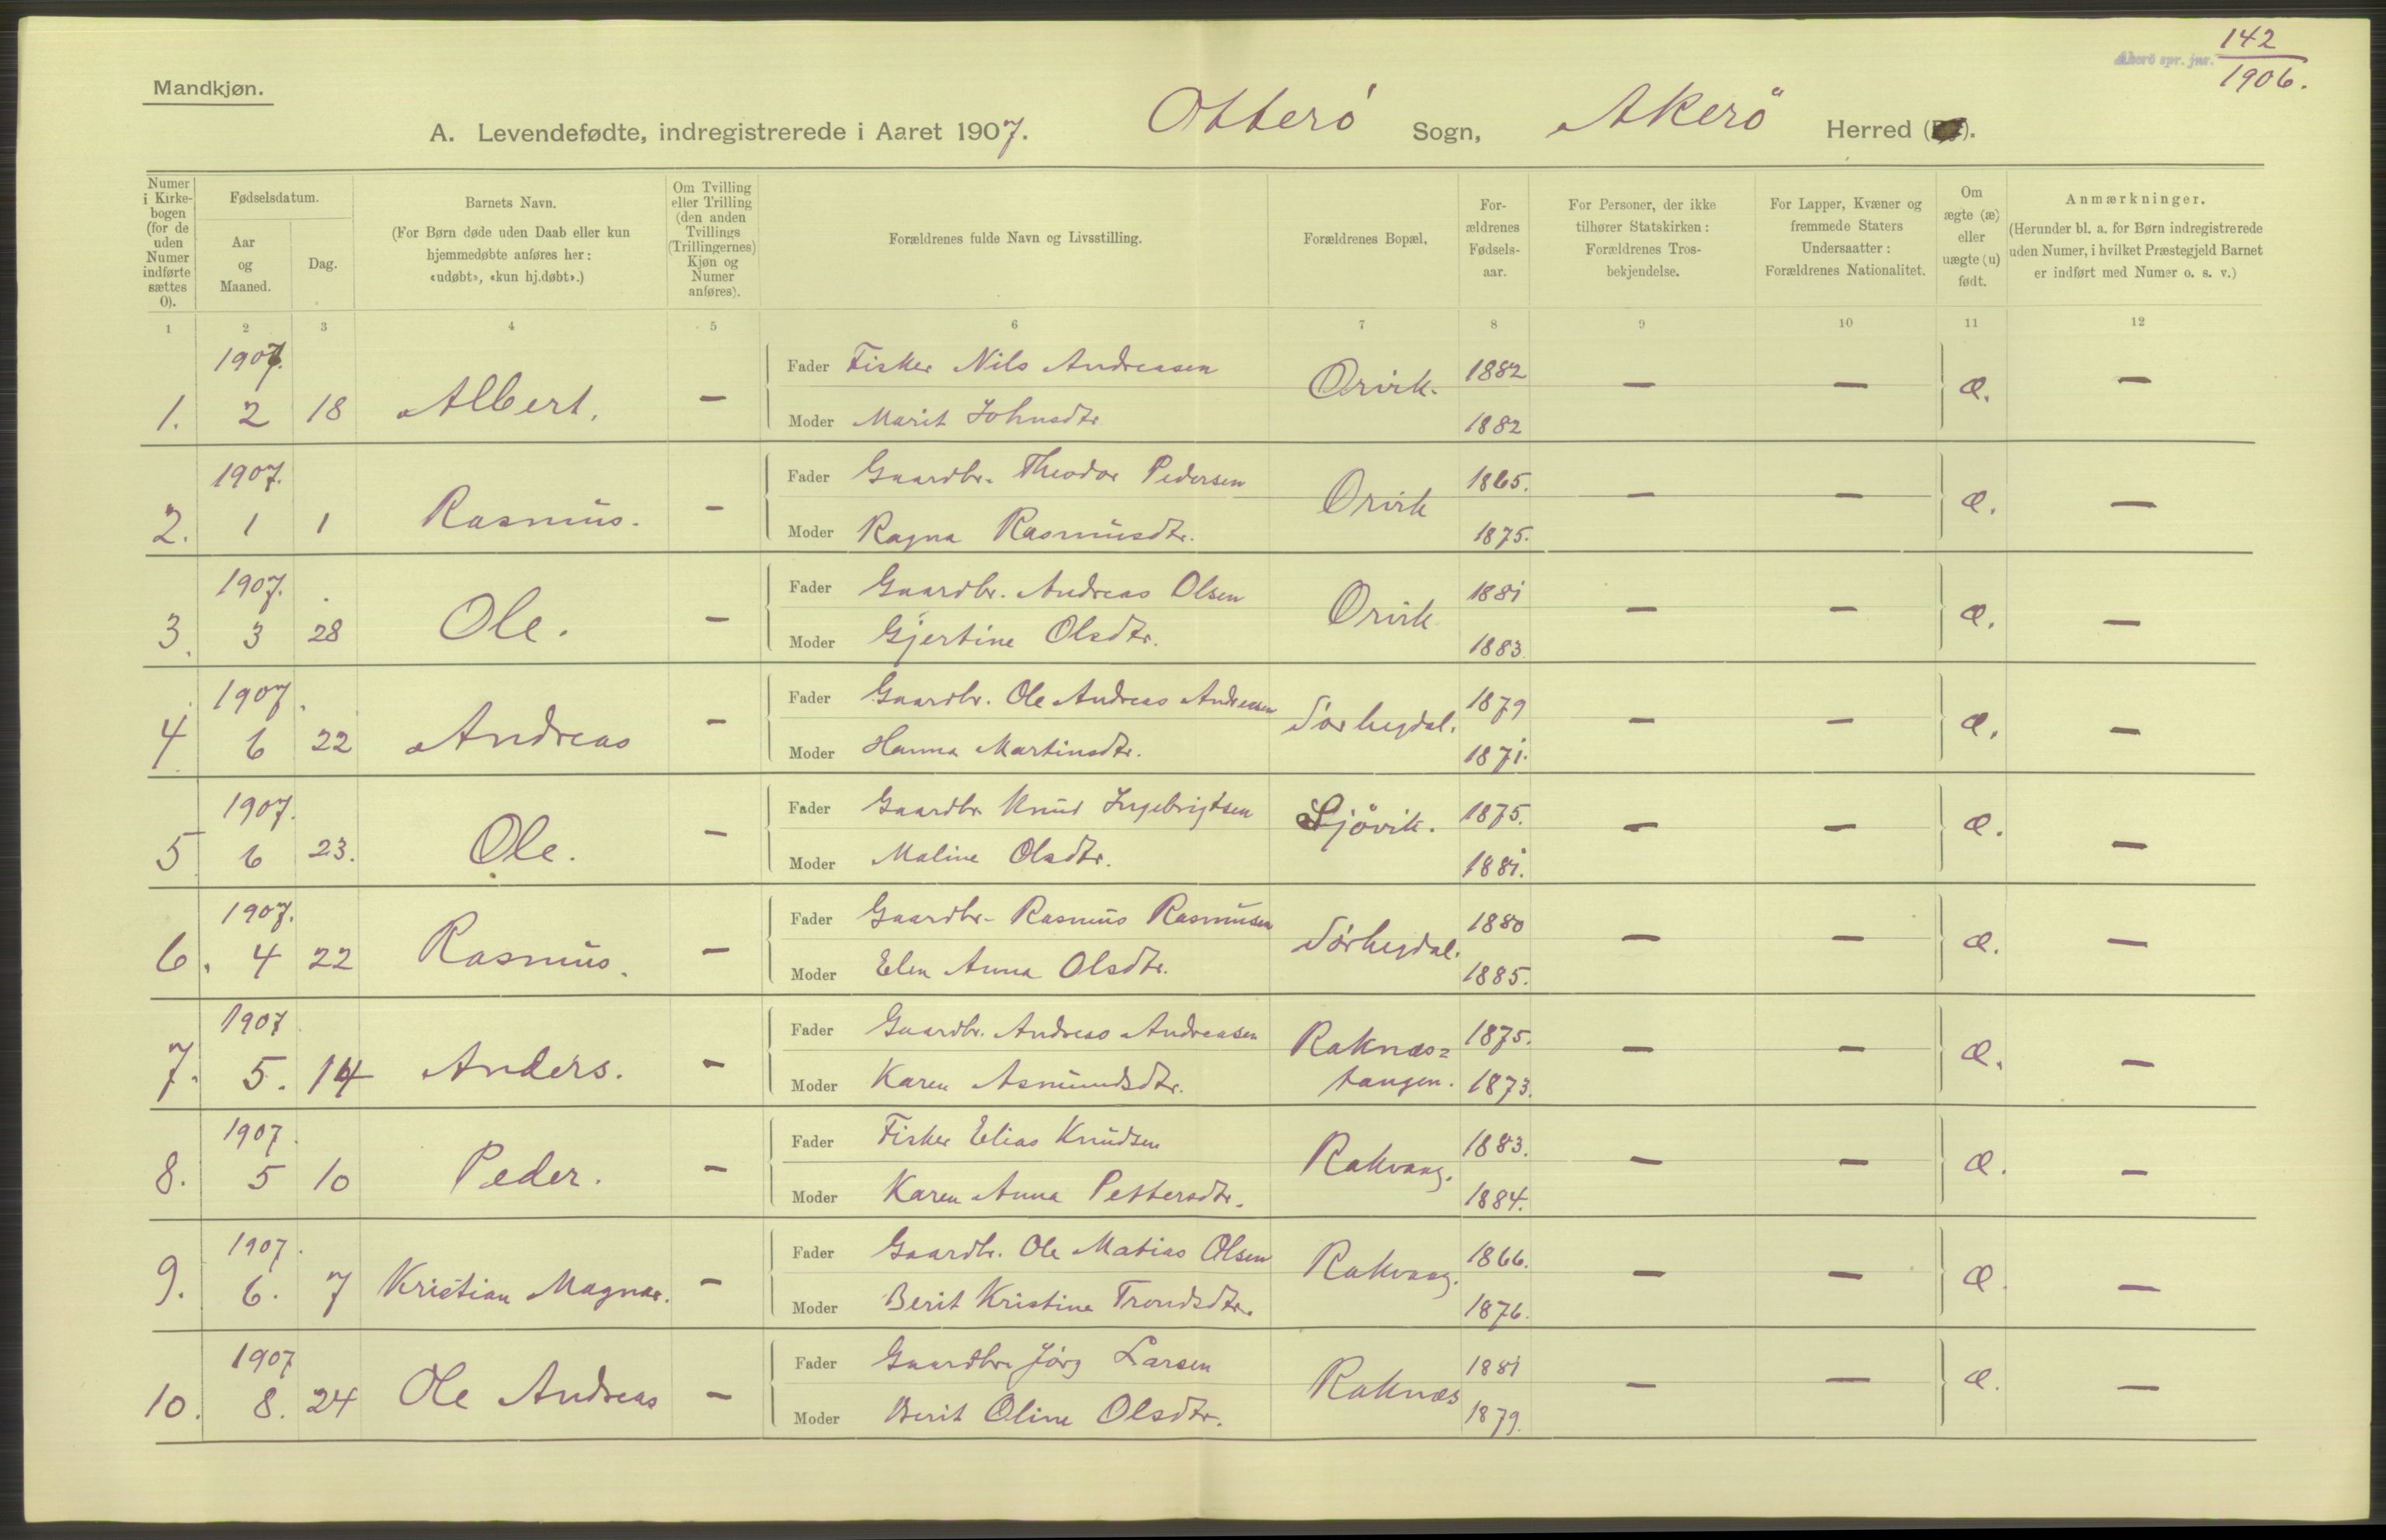 142
Akerö spr. jnr.
1906.
Mandkjøn.
A. Levendefødte, indregistrerede i Aaret 1907. Otterö Sogn, Akerö Herred ( ).
Numer i Kirkebogen (for de uden Numer indførte sættes 0).
Fødselsdatum.
Aar og Maaned.
Dag.
Barnets Navn.
(For Børn døde uden Daab eller kun hjemmedøbte anføres her: «udøbt», «kun hj.døbt».)
Om Tvilling eller Trilling (den anden Tvillings (Trillingernes) Kjøn og Numer anføres).
Forældrenes fulde Navn og Livsstilling.
Forældrenes Bopæl.
For-ældrenes Fødsels-aar.
For Personer, der ikke tilhører Statskirken: Forældrenes Tros-bekjendelse.
For Lapper, Kvæner og fremmede Staters Undersaatter: Forældrenes Nationalitet.
Om ægte (æ) eller uægte (u) født.
Anmærkninger.
(Herunder bl. a. for Børn indregistrerede uden Numer, i hvilket Præstegjeld Barnet er indført med Numer o. s. v.)
1 2 3 4 5 6 7 8 9 10 11 12
1907. Fader Fisker Nils Andreasen Orvik. 1882
1. 2 18 Albert. — Moder Marit Johnsdtr. 1882 — — æ. —
1907. Fader Gaardbr. Theodor Pedersen Orvik 1865.
2. 1 1 Rasmus. — Moder Ragna Rasmusdtr. 1875. — — æ. —
1907. Fader Gaardbr. Andreas Olsen Orvik 1881
3. 3 28 Ole. — Moder Gjertine Olsdtr. 1883. — — æ. —
1907. Fader Gaardbr. Ole Andreas Andreasen Sörhegdal. 1879
4 6 22 Andreas — Moder Hanna Martinsdtr. 1871. — — æ. —
1907. Fader Gaardbr. Knud Ingebrigtsen Sjövik. 1875.
5 6 23. Ole. — Moder Maline Olsdtr. 1881. — — æ. —
1907. Fader Gaardbr. Rasmus Rasmusen Sörhegdal. 1880
6. 4 22 Rasmus. — Moder Elen Anna Olsdtr. 1885. — — æ. —
1907 Fader Gaardbr. Andreas Andreasen Raknæs= 1875.
7. 5. 14 Anders. — Moder Karen Asmundsdtr. tangen. 1873. — — æ. —
1907. Fader Fisker Elias Knudsen Rakvaag. 1883.
8. 5 10 Peder. — Moder Karen Anna Pettersdtr. 1884. — — æ. —
1907. Fader Gaardbr. Ole Matias Olsen Rakvaag. 1866.
9. 6. 7 Kristian Magnar. — Moder Berit Kristine Trondsdtr. 1876. — — æ. —
1907 Fader Gaardbr. Jörg Larsen Raknæs 1881
10. 8. 24 Ole Andreas — Moder Berit Oline Olsdtr. 1879. — — æ. —